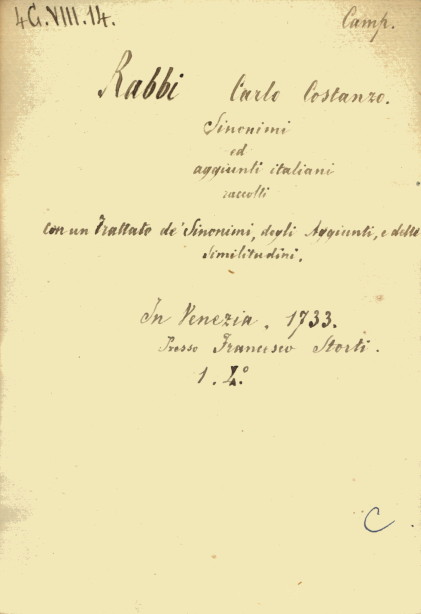 4G.VIII.14.
Camp.
Rabbi Carlo Costanzo.
Sinonimi
ed
aggiunti italiani
raccolti
con un Trattato de' Sinonimi, degli Aggiunti, e delle
Similitudini.
In Venezia. 1733.
Presso Francesco Storti.
1. 4.°
C